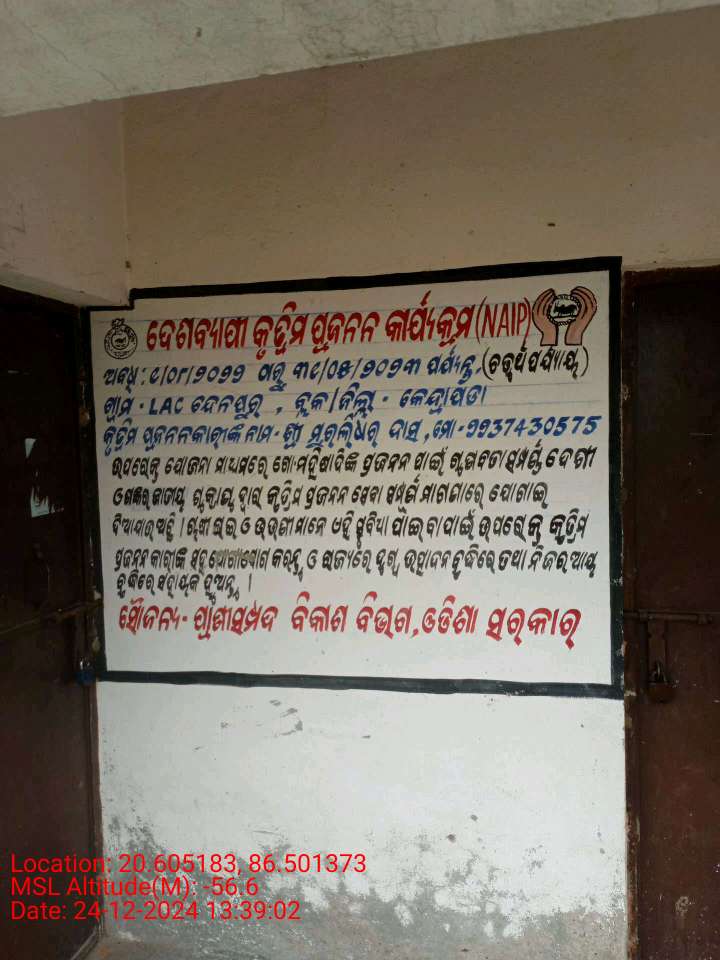 ଦେଶବ୍ୟାପୀ କୃତ୍ରିମ ପ୍ରଜନନ କାର୍ଯ୍ୟକ୍ରମ (NAIP)
ଅବଧି: ୯/୦୮/୨୦୨୨ ଠାରୁ ୩୧/୦୫/୨୦୨୩ ପର୍ଯ୍ୟନ୍ତ, (ଚତୁର୍ଥ ପର୍ଯ୍ୟାୟ)
ଗ୍ରାମ - LAC ଦେନପୁର, ବ୍ଲକ/ଜିଲ୍ଲା - କେନ୍ଦ୍ରାପଡା
କୃତ୍ରିମ ପ୍ରଜନନକାରୀଙ୍କ ନାମ - ଶ୍ରୀ ମୁରଲିଧର ଦାସ, ମୋ - 9937430575
ଉପରୋକ୍ତ ଯୋଜନା ମାଧ୍ୟମରେ ଗୋ-ମହିଷାଦିଙ୍କ ପ୍ରଜନନ ପାଇଁ ଗୁଣବତା ସମ୍ପର୍ଣ୍ଣ ଦେଶୀ
ଓ ଶଙ୍କର ଜାତୀୟ ଶୁକ୍ରାଣୁ ଦ୍ୱାରା କୃତ୍ରିମ ପ୍ରଜନନ ସେବା ସମ୍ପୂର୍ଣ ମାଗଣାରେ ଯୋଗାଇ
ଦିଆଯାଉଅଛି । ଗୃହୀ ଭାଇ ଓ ଭଉଣୀମାନେ ଏହି ସୁବିଧା ପାଇବା ପାଇଁ ଉପରୋକ୍ତ କୃତ୍ରିମ
ପ୍ରଜନନକାରୀଙ୍କ ସହ ଯୋଗାଯୋଗ କରନ୍ତୁ ଓ ରାଜ୍ୟରେ ଦୁଗ୍ଧ ଉତ୍ପାଦନ ବୃଦ୍ଧିରେ ତଥା ନିଜର ଆୟ
ବୃଦ୍ଧିରେ ସହାୟକ ହୁଅନ୍ତୁ ।
ସୌଜନ୍ୟ - ପ୍ରାଣୀସମ୍ପଦ ବିକାଶ ବିଭାଗ, ଓଡିଶା ସରକାର
Location: 20.605183, 86.501373
MSL Altitude(M): -56.6
Date: 24-12-2024 13:39:02